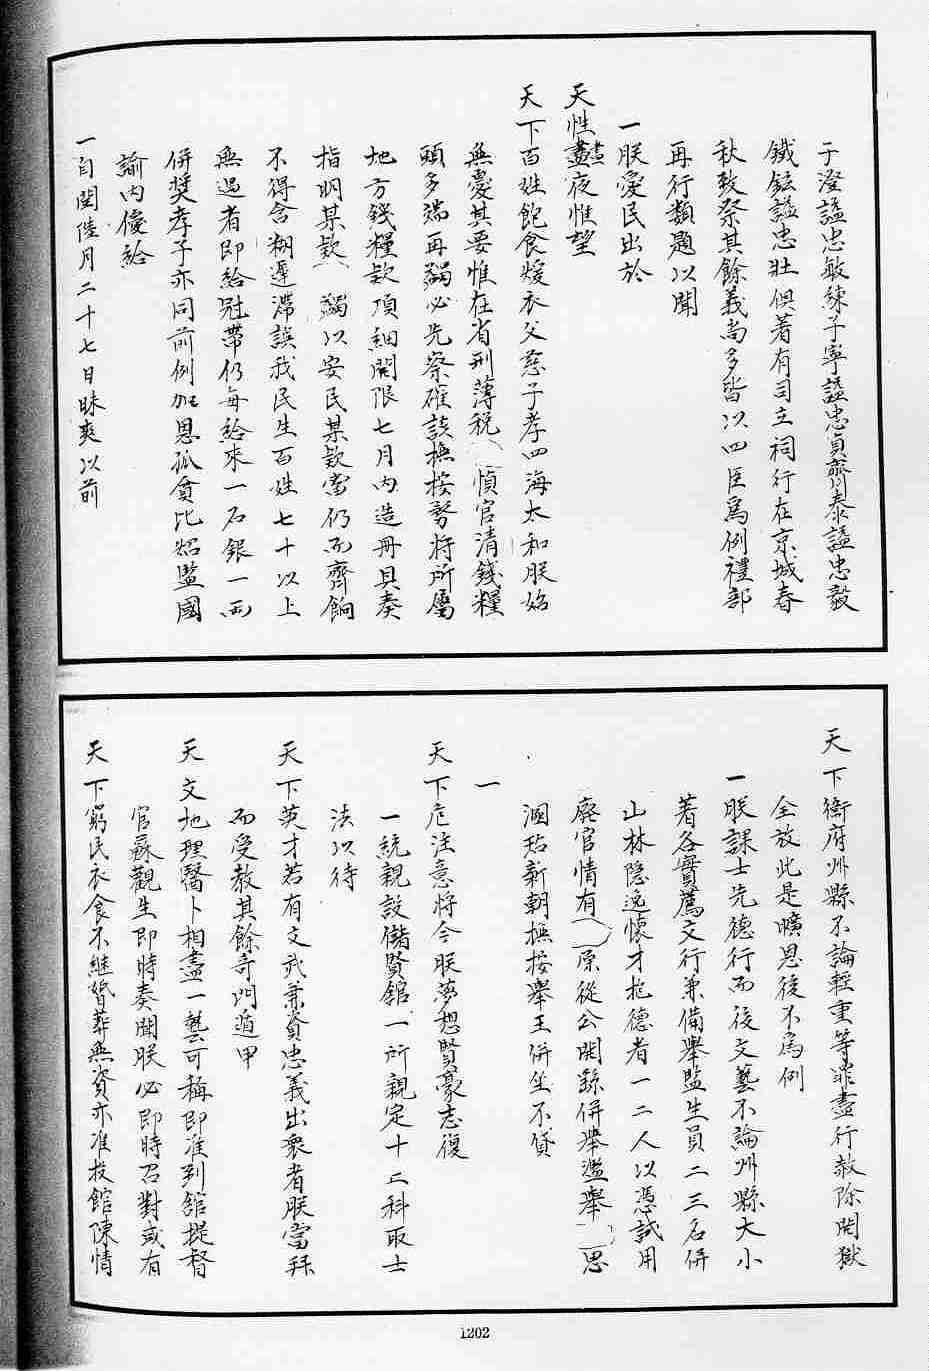 子澄謚忠敏練子寧謚忠貞齊泰謚忠毅
鐵鉉謚忠壯俱著有司立祠行在京城春
秋致祭其餘義尚多皆以四臣爲例禮部
再行類題以聞
一朕愛民出於
天性晝夜惟望
天下百姓飽食煖衣父慈子孝四海太和朕始
無憂其要惟在省刑薄稅慎官清錢糧
頭多端再蠲必先察確該撫按勢將所屬
地方錢糧款項細開限七月內造冊具奏
指明某款蠲以安民某款當仍而齊餉
不得含糊遲滯誤我民生百姓七十以上
無過者即給冠帶仍每給來一石銀一兩
併獎孝子亦同前例加恩孤貧比炤監國
諭內優給
一自閏陸月二十七日昧爽以前
天下衛府州縣不論輕重等罪盡行赦除開獄
全放此是曠恩後不爲例
一朕課士先德行而後文藝不論州縣大小
著各實薦文行兼備舉監生員二三名併
山林隱逸懷才抱德者一二人以憑試用
廢官情有原從公開錄併舉濫舉思
溷玷新朝撫按舉王併坐不貸
一
天下危注意將今朕夢想賢豪志復
一統親設儲賢館一所親定十二科取士
法以待
天下英才若有文武兼資忠義出衆者朕當拜
而受教其餘奇門遁甲
天文地理醫卜相盡一藝可稱即准到館提督
官蘇觀生即時奏聞朕必即時召對或有
天下窮民衣食不繼婚葬無資亦准投館陳情
1202